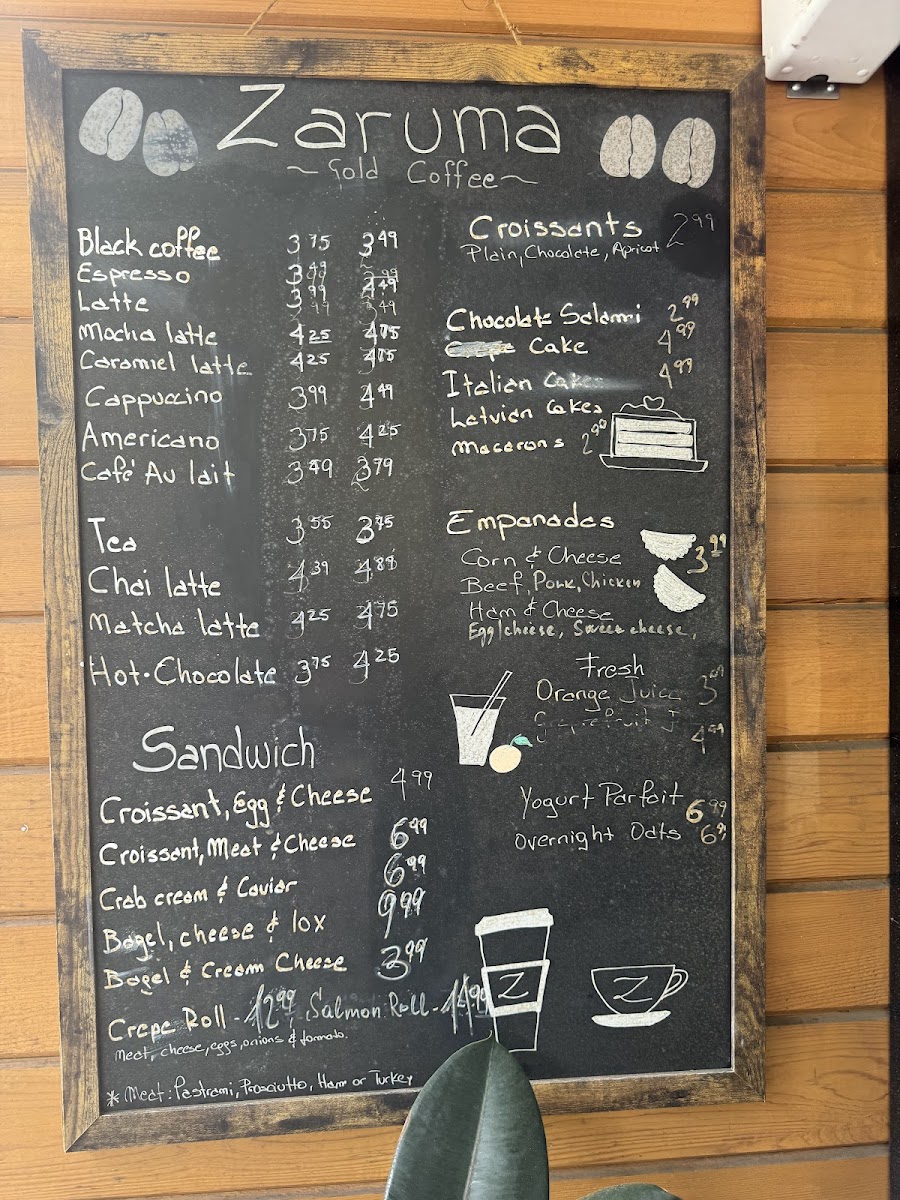 Zaruma
~ Gold Coffee ~
Black coffee 3.75 3.49
Espresso 3.49
Latte 3.99 4.49
Mocha latte 4.25 4.75
Caramel latte 4.25 4.75
Cappuccino 3.99 4.49
Americano 3.75 4.25
Café Au lait 3.49 3.79
Tea 3.55 3.75
Chai latte 4.39 4.89
Matcha latte 4.25 4.75
Hot·Chocolate 3.75 4.25
Sandwich
Croissant, Egg & Cheese 4.99
Croissant, Meat & Cheese 6.99
Crab cream & Caviar 6.99
Bagel, cheese & lox 9.99
Bagel & Cream Cheese 3.99
Crepe Roll - 12.99, Salmon Roll - 14.99
Meat, cheese, eggs, onions & tomato.
* Meat: Pastrami, Prosciutto, Ham or Turkey
Croissants 2.99
Plain, Chocolate, Apricot
Chocolate Salami 2.99
Cake 4.99
Italian Cakes 4.99
Latvian Cakes
Macarons 2.99
Empanadas
Corn & Cheese 3.99
Beef, Pork, Chicken
Ham & Cheese
Egg/cheese, Sweet cheese,
Fresh
Orange Juice
Grapefruit J
Yogurt Parfait 6.99
Overnight Oats
Z
Z